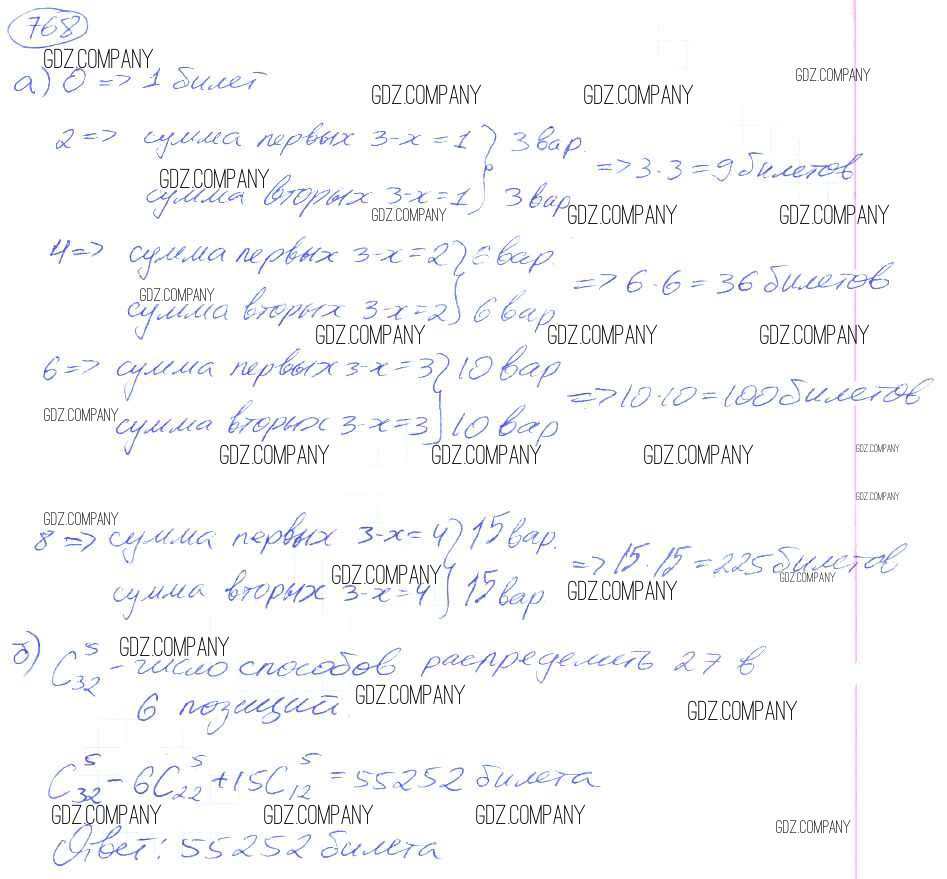 768
GDZ.COMPANY
а) 0 => 1 билет
GDZ.COMPANY GDZ.COMPANY GDZ.COMPANY
2 => сумма первых 3-х = 1 } 3 вар.
=> 3·3 = 9 билетов
GDZ.COMPANY
сумма вторых 3-х = 1 } 3 вар
GDZ.COMPANY GDZ.COMPANY GDZ.COMPANY
4 => сумма первых 3-х = 2 } 6 вар.
=> 6·6 = 36 билетов
GDZ.COMPANY
сумма вторых 3-х = 2 } 6 вар
GDZ.COMPANY GDZ.COMPANY GDZ.COMPANY
6 => сумма первых 3-х = 3 } 10 вар
=> 10·10 = 100 билетов
GDZ.COMPANY
сумма вторых 3-х = 3 } 10 вар
GDZ.COMPANY GDZ.COMPANY GDZ.COMPANY GDZ.COMPANY
GDZ.COMPANY
GDZ.COMPANY
8 => сумма первых 3-х = 4 } 15 вар.
=> 15·15 = 225 билетов
GDZ.COMPANY GDZ.COMPANY GDZ.COMPANY
сумма вторых 3-х = 4 } 15 вар
GDZ.COMPANY
б) C₃₂⁵ - число способов распределить 27 в
6 позиций.
GDZ.COMPANY GDZ.COMPANY
C₃₂⁵ - 6C₂₂⁵ + 15C₁₂⁵ = 55252 билета
GDZ.COMPANY GDZ.COMPANY GDZ.COMPANY GDZ.COMPANY
Ответ: 55252 билета